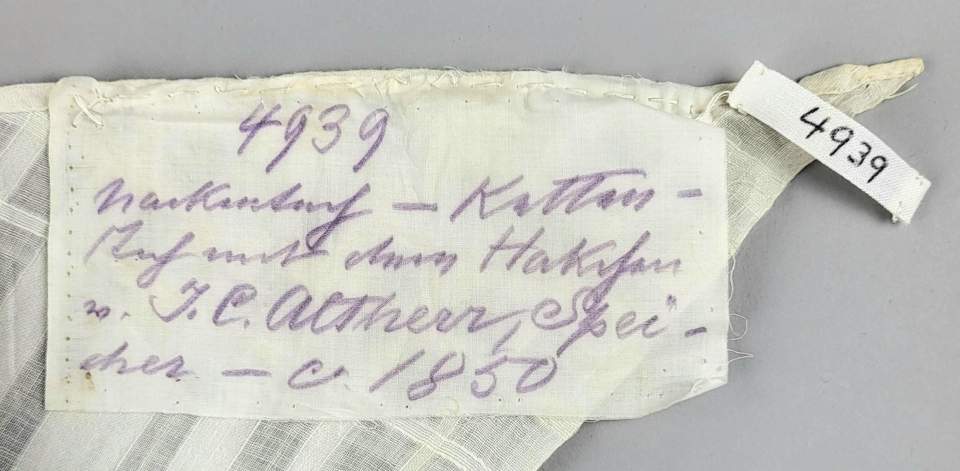 4939
Nackentuch — Ketten-
stich mit dem Häkchen
v. J. C. Altherr, Spei-
cher — c. 1850
4939